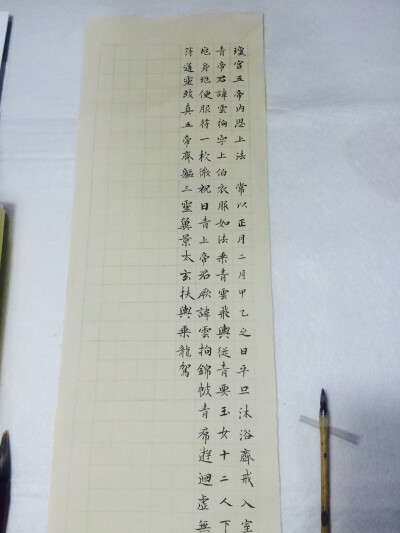 瓊宮五帝內思上法 常以正月二月甲乙之日平旦沐浴齋戒入室
青帝君諱雲拘字上伯衣服如法乘青雲飛輿從青要玉女十二人下
兆身兆便服符一枚微祝曰青上帝君厥諱雲拘錦帔青帬遊迴虛無
得道靈致真五帝齊軀三靈翼景太玄扶輿乘龍駕